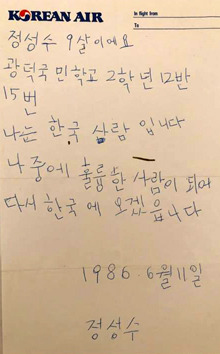 KOREAN AIR
In flight from
To
정성수 9살이에요
광덕국민학교 2학년 12반
15번
나는 한국 사람 입니다
나중에 훌륭한 사람이 되어
다시 한국에 오겠읍니다
1986.6월 11일
정성수